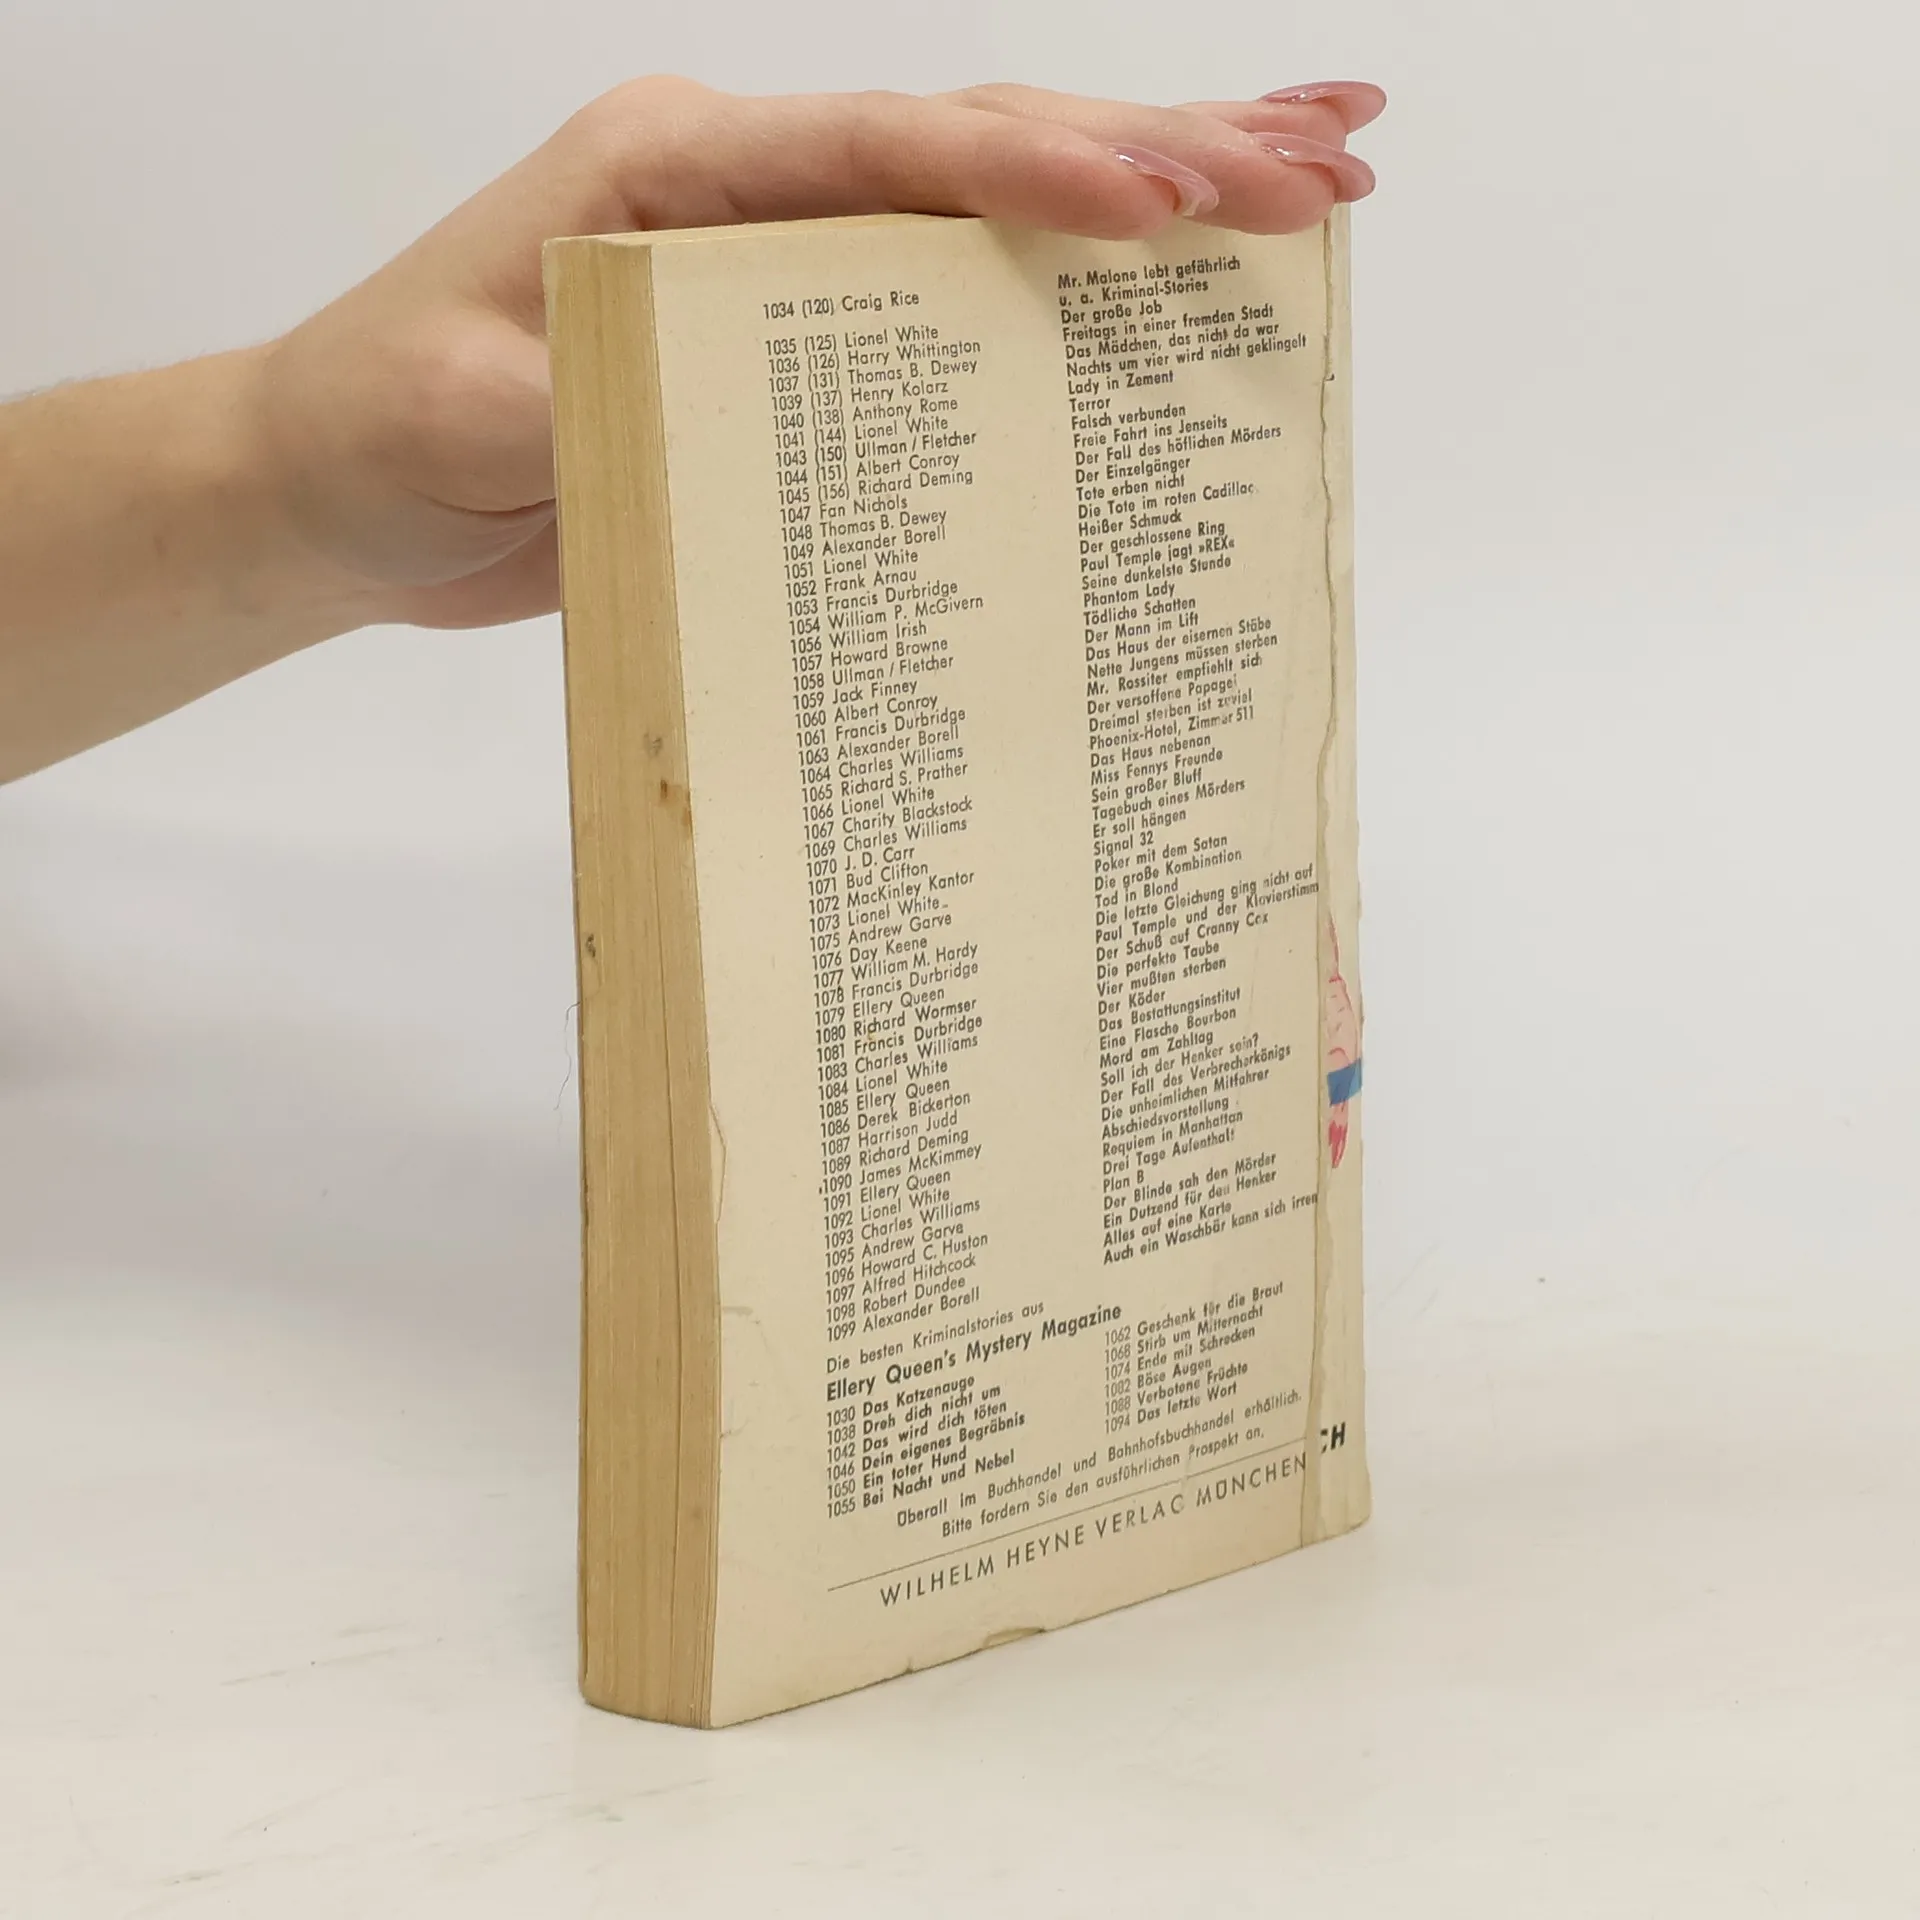 1034 (120) Craig Rice Mr. Malone lebt gefährlich
u. a. Kriminal-Stories
1035 (125) Lionel White Der große Job
1036 (126) Harry Whittington Freitags in einer fremden Stadt
1037 (131) Thomas B. Dewey Das Mädchen, das nicht da war
1039 (137) Henry Kolarz Nachts um vier wird nicht geklingelt
1040 (138) Anthony Rome Lady in Zement
1041 (144) Lionel White Terror
1043 (150) Ullman / Fletcher Falsch verbunden
1044 (151) Albert Conroy Freie Fahrt ins Jenseits
1045 (156) Richard Deming Der Fall des höflichen Mörders
1047 Fan Nichols Der Einzelgänger
1048 Thomas B. Dewey Tote erben nicht
1049 Alexander Borell Die Tote im roten Cadillac
1051 Lionel White Heißer Schmuck
1052 Frank Arnau Der geschlossene Ring
1053 Francis Durbridge Paul Temple jagt »REX«
1054 William P. McGivern Seine dunkelste Stunde
1056 William Irish Phantom Lady
1057 Howard Browne Tödliche Schatten
1058 Ullman / Fletcher Der Mann im Lift
1059 Jack Finney Das Haus der eisernen Stäbe
1060 Albert Conroy Nette Jungens müssen sterben
1061 Francis Durbridge Mr. Rossiter empfiehlt sich
1063 Alexander Borell Der versoffene Papagei
1064 Charles Williams Dreimal sterben ist zuviel
1065 Richard S. Prather Phoenix-Hotel, Zimmer 511
1066 Lionel White Das Haus nebenan
1067 Charity Blackstock Miss Fennys Freunde
1069 Charles Williams Sein großer Bluff
1070 J. D. Carr Tagebuch eines Mörders
1071 Bud Clifton Er soll hängen
1072 MacKinley Kantor Signal 32
1073 Lionel White Poker mit dem Satan
1075 Andrew Garve Die große Kombination
1076 Day Keene Tod in Blond
1077 William M. Hardy Die letzte Gleichung ging nicht auf
1078 Francis Durbridge Paul Temple und der Klavierstimm
1079 Ellery Queen Der Schuß auf Cranny Cox
1080 Richard Wormser Die perfekte Taube
1081 Francis Durbridge Vier mußten sterben
1083 Charles Williams Der Köder
1084 Lionel White Das Bestattungsinstitut
1085 Ellery Queen Eine Flasche Bourbon
1086 Derek Bickerton Mord am Zahltag
1087 Harrison Judd Soll ich der Henker sein?
1089 Richard Deming Der Fall des Verbrecherkönigs
1090 James McKimmey Die unheimlichen Mitfahrer
1091 Ellery Queen Abschiedsvorstellung
1092 Lionel White Requiem in Manhattan
1093 Charles Williams Drei Tage Aufenthalt
1095 Andrew Garve Plan B
1096 Howard C. Huston Der Blinde sah den Mörder
1097 Alfred Hitchcock Ein Dutzend für den Henker
1098 Robert Dundee Alles auf eine Karte
1099 Alexander Borell Auch ein Waschbär kann sich irren
Die besten Kriminalstories aus
Ellery Queen's Mystery Magazine
1030 Das Katzenauge 1062 Geschenk für die Braut
1038 Dreh dich nicht um 1068 Stirb um Mitternacht
1042 Das wird dich töten 1074 Ende mit Schrecken
1046 Dein eigenes Begräbnis 1082 Böse Augen
1050 Ein toter Hund 1088 Verbotene Früchte
1055 Bei Nacht und Nebel 1094 Das letzte Wort
Überall im Buchhandel und Bahnhofsbuchhandel erhältlich.
Bitte fordern Sie den ausführlichen Prospekt an.
WILHELM HEYNE VERLAG MÜNCHEN
CH